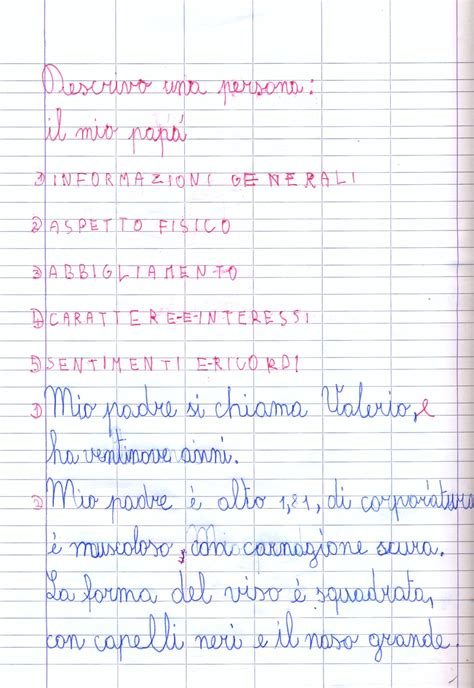 Descrivo una persona:
il mio papá
1) INFORMAZIONI GENERALI
2) ASPETTO FISICO
3) ABBIGLIAMENTO
4) CARATTERE-E-INTERESSI
5) SENTIMENTI E-RICORDI
1) Mio padre si chiama Valerio, e
ha ventinove anni.
2) Mio padre é alto 1,81, di corporatura
é muscoloso, con carnagione scura.
La forma del viso é squadrata,
con capelli neri e il naso grande.